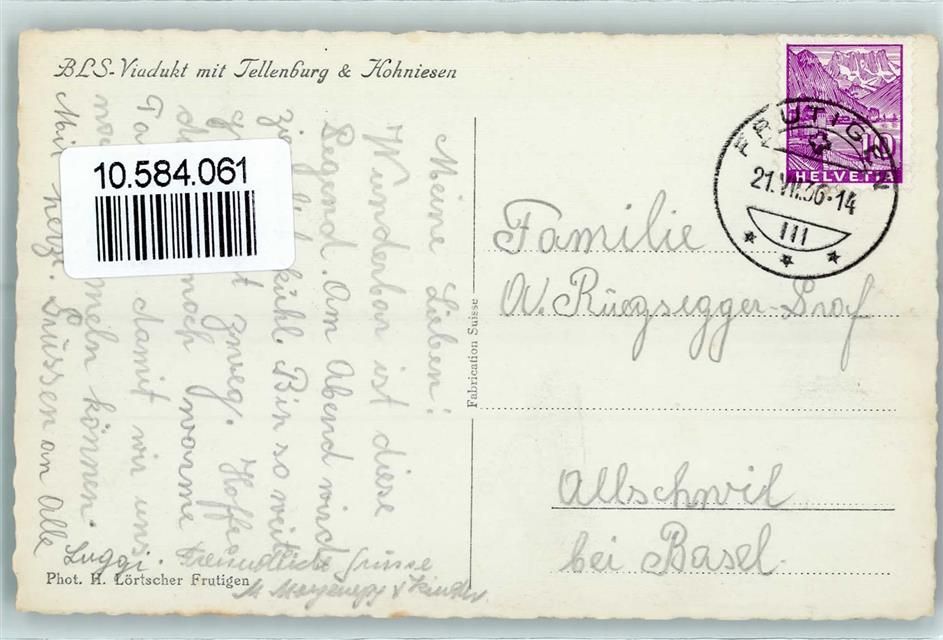 BLS-Viadukt mit Tellenburg & Hohniesen
10.584.061
HELVETIA
10
FRUTIGEN
21.VII.36-14
III
Meine Lieben!
Wunderbar ist diese
Gegend. Am Abend wird
kühl. Bin so weit
zweg. Hoffe
noch warme
damit wir uns
können.
Mit herz. Grüssen an Alle
Luggi.
Freundliche Grüsse
Kinder
Familie
W. Rüegsegger-Graf
Allschwil
bei Basel.
Fabrication Suisse
Phot. H. Lörtscher Frutigen